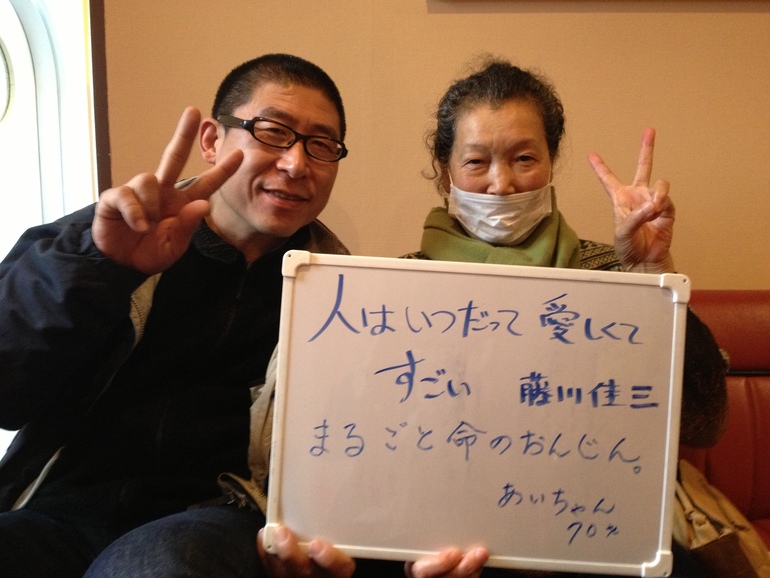 人はいつだって 愛しくて
すごい 藤川佳三
まるごと命のおんじん。
あいちゃん
70%